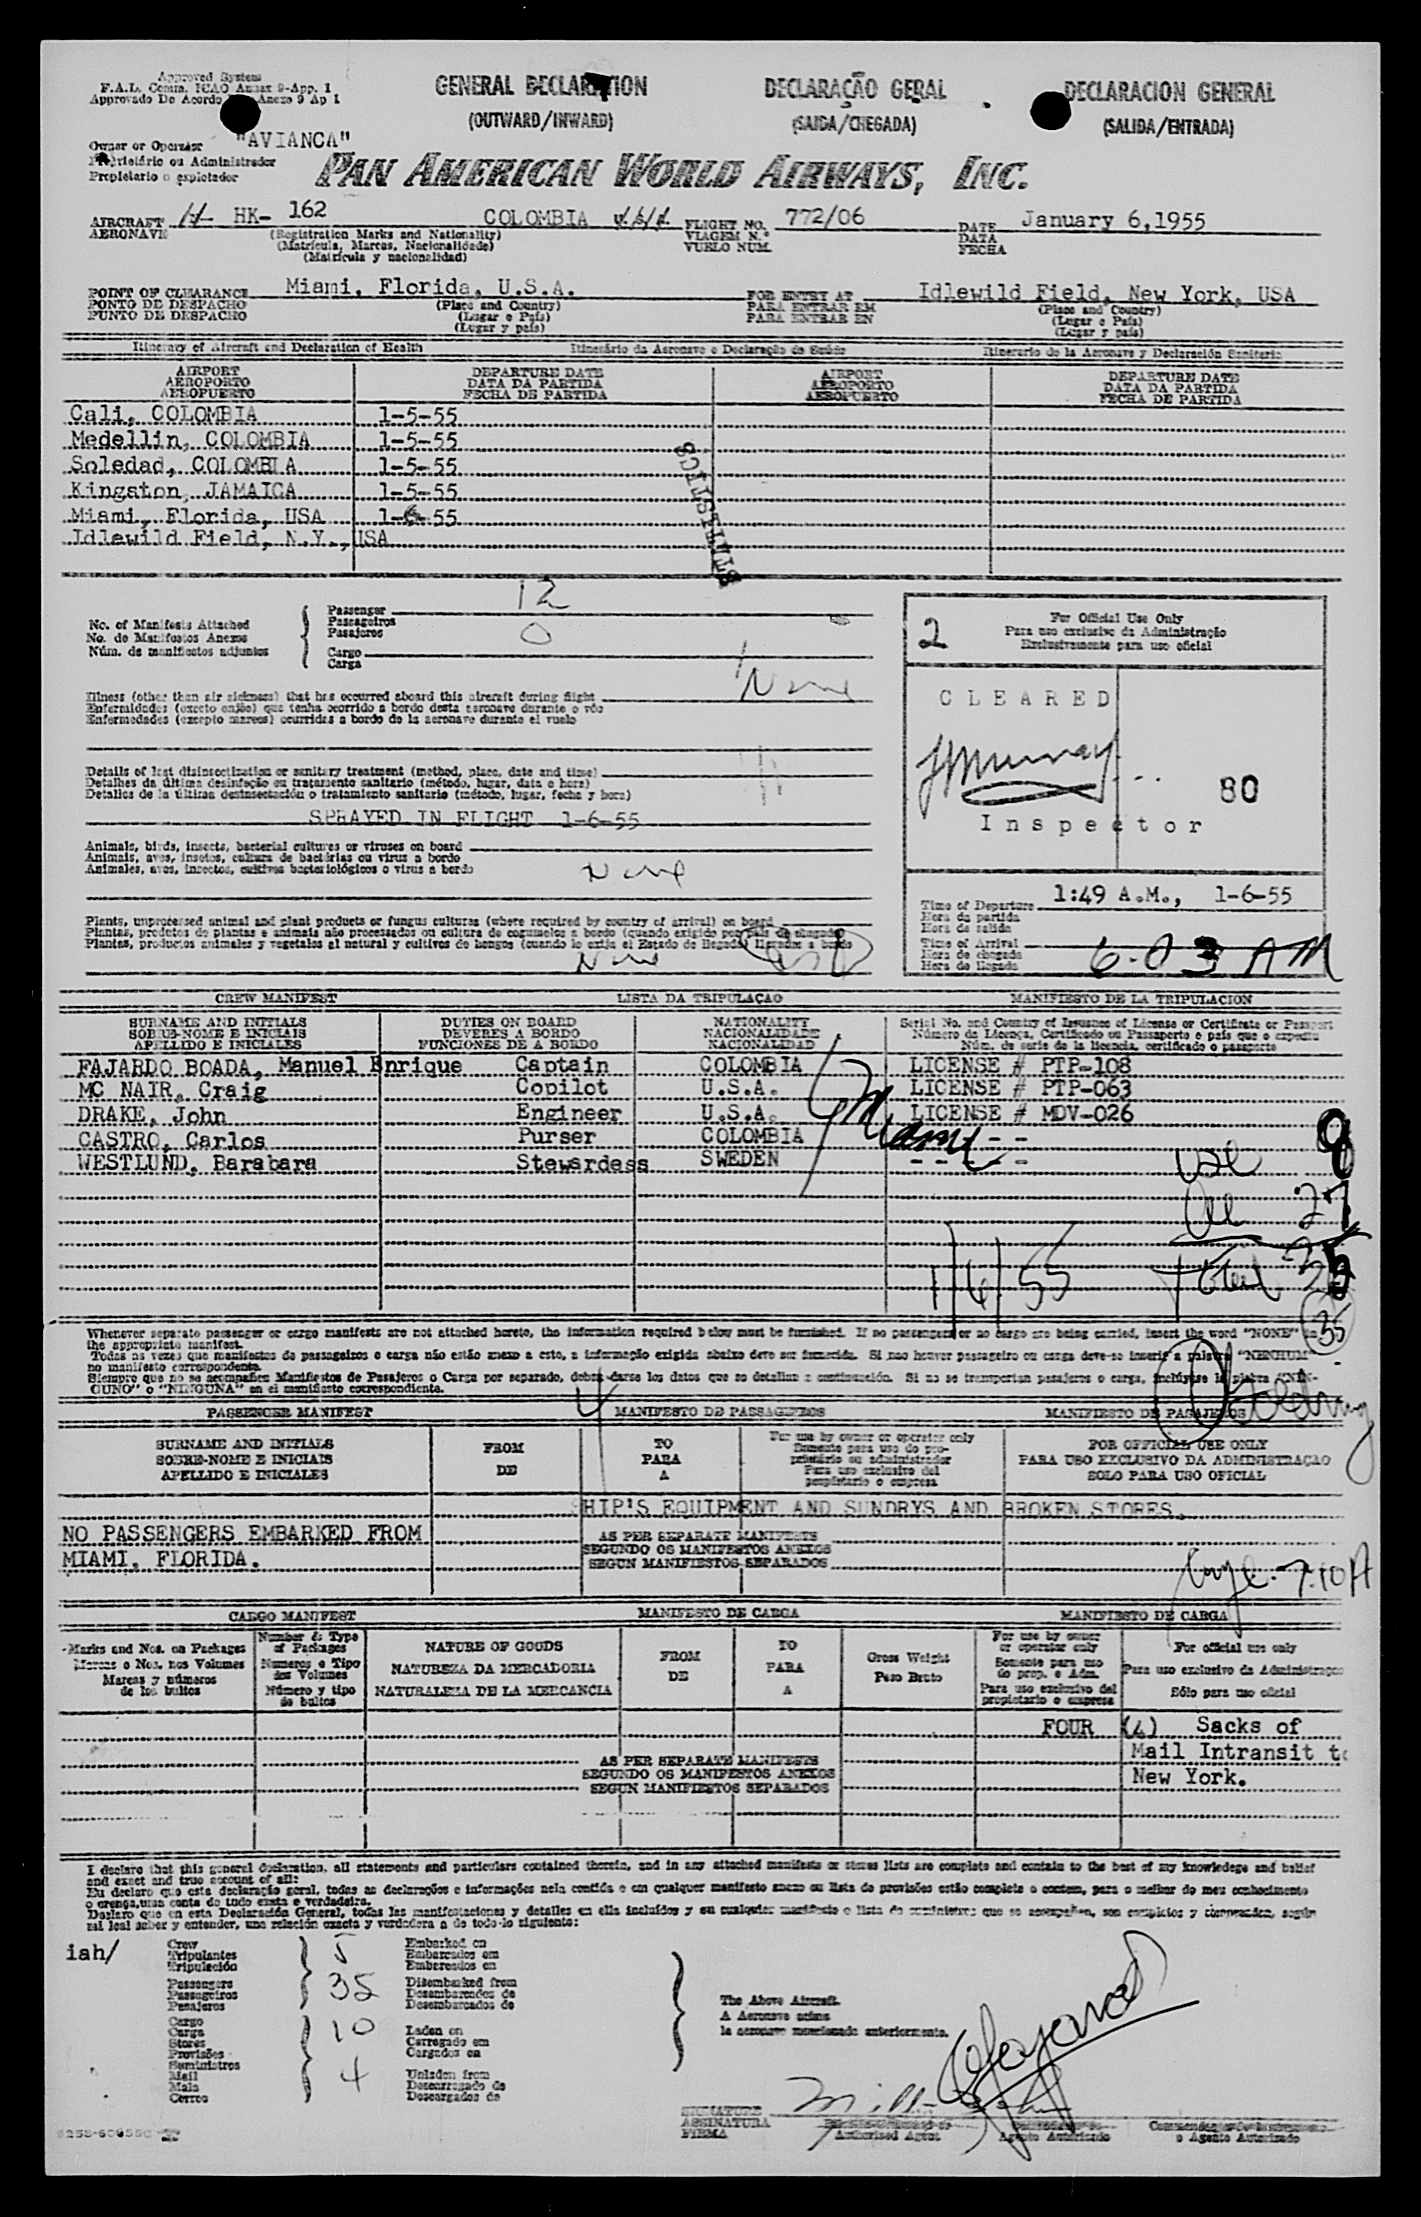 Approved System
F.A.L. Comm. ICAO Annex 9-App. 1
Approvado De Acordo Anexo 9 Ap 1
GENERAL DECLARATION
(OUTWARD/INWARD)
DECLARAÇÃO GERAL
(SAIDA/CHEGADA)
DECLARACION GENERAL
(SALIDA/ENTRADA)
Owner or Operator "AVIANCA"
Proprietário ou Administrador
Propietario o explotador
PAN AMERICAN WORLD AIRWAYS, INC.
AIRCRAFT HK- 162 COLOMBIA FLIGHT NO. 772/06 DATE January 6,1955
AERONAVE (Registration Marks and Nationality) VIAGEM N.º DATA
(Matrícula, Marcas, Nacionalidade) VUELO NUM. FECHA
(Matrícula y nacionalidad)
POINT OF CLEARANCE Miami, Florida, U.S.A. FOR ENTRY AT Idlewild Field, New York, USA
PONTO DE DESPACHO (Place and Country) PARA ENTRAR EM (Place and Country)
PUNTO DE DESPACHO (Lugar e País) PARA ENTRAR EN (Lugar e País)
(Lugar y país) (Lugar y país)
Itinerary of Aircraft and Declaration of Health Itinerário da Aeronave e Declaração de Saúde Itinerario de la Aeronave y Declaración Sanitaria
AIRPORT DEPARTURE DATE AIRPORT DEPARTURE DATE
AEROPORTO DATA DA PARTIDA AEROPORTO DATA DA PARTIDA
AEROPUERTO FECHA DE PARTIDA AEROPUERTO FECHA DE PARTIDA
Cali, COLOMBIA 1-5-55
Medellin, COLOMBIA 1-5-55
Soledad, COLOMBIA 1-5-55
Kingston, JAMAICA 1-5-55
Miami, Florida, USA 1-6-55
Idlewild Field, N.Y., USA
STATISTICS
No. of Manifests Attached Passenger 12
No. de Manifestos Anexos Passageiros
Núm. de manifiestos adjuntos Pasajeros 0
Cargo
Carga
Illness (other than air sickness) that has occurred aboard this aircraft during flight None
Enfermidades (exceto enjôo) que tenha ocorrido a bordo desta aeronave durante o vôo
Enfermedades (excepto mareos) ocurridas a bordo de la aeronave durante el vuelo
Details of last disinsectization or sanitary treatment (method, place, date and time)
Detalhes da última desinfeção ou tratamento sanitario (método, lugar, data e hora)
Detalles de la última desinsectación o tratamiento sanitario (método, lugar, fecha y hora)
SPRAYED IN FLIGHT 1-6-55
Animals, birds, insects, bacterial cultures or viruses on board
Animais, aves, insetos, cultura de bactérias ou virus a bordo
Animales, aves, insectos, cultivos bacteriológicos o virus a bordo None
Plants, unprocessed animal and plant products or fungus cultures (where required by country of arrival) on board
Plantas, produtos de plantas e animais não processados ou cultura de cogumelos a bordo (quando exigido por país de chegada)
Plantas, productos animales y vegetales al natural y cultivos de hongos (cuando lo exija el Estado de llegada) llevados a bordo
None
2 For Official Use Only
Para uso exclusivo da Administração
Exclusivamente para uso oficial
CLEARED
80
Inspector
Time of Departure 1:49 A.M., 1-6-55
Hora da partida
Hora de salida
Time of Arrival 6-03 AM
Hora de chegada
Hora de llegada
CREW MANIFEST LISTA DA TRIPULAÇAO MANIFIESTO DE LA TRIPULACION
SURNAME AND INITIALS DUTIES ON BOARD NATIONALITY Serial No. and Country of Issuance of License or Certificate or Passport
SOBRE-NOME E INICIAIS DEVERES A BORDO NACIONALIDADE Número da Licença, Certificado ou Passaporte e país que o expediu
APELLIDO E INICIALES FUNCIONES DE A BORDO NACIONALIDAD Núm. de serie de la licencia, certificado o pasaporte
FAJARDO BOADA, Manuel Enrique Captain COLOMBIA LICENSE # PTP-108
MC NAIR, Craig Copilot U.S.A. LICENSE # PTP-063
DRAKE, John Engineer U.S.A. LICENSE # MDV-026
CASTRO, Carlos Purser COLOMBIA - -
WESTLUND, Barabara Stewardess SWEDEN - - - - -
Miami
1/6/55
Total
35
Whenever separate passenger or cargo manifests are not attached hereto, the information required below must be furnished. If no passengers or no cargo are being carried, insert the word "NONE" in
the appropriate manifest.
Todas as vezes que manifestos de passageiros e carga não estão anexo a este, a informação exigida abaixo deve ser fornecida. Si nao houver passageiro ou carga deve-se inserir a palavra "NENHUM"
no manifesto correspondente.
Siempre que no se acompañen Manifiestos de Pasajeros o Carga por separado, debera darse los datos que se detallan a continuación. Si no se transportan pasajeros o carga, inclúyase la palabra "NIN-
GUNO" o "NINGUNA" en el manifiesto correspondiente.
PASSENGER MANIFEST MANIFESTO DE PASSAGEIROS MANIFIESTO DE PASAJEROS
SURNAME AND INITIALS FROM TO For use by owner or operator only FOR OFFICIAL USE ONLY
SOBRE-NOME E INICIAIS DE PARA Somente para uso do proprietário ou administrador PARA USO EXCLUSIVO DA ADMINISTRAÇAO
APELLIDO E INICIALES A Para uso exclusivo del propietario o empresa SOLO PARA USO OFICIAL
SHIP'S EQUIPMENT AND SUNDRYS AND BROKEN STORES.
NO PASSENGERS EMBARKED FROM AS PER SEPARATE MANIFESTS
MIAMI, FLORIDA. SEGUNDO OS MANIFESTOS ANEXOS
SEGUN MANIFIESTOS SEPARADOS
7.10A
CARGO MANIFEST MANIFESTO DE CARGA MANIFIESTO DE CARGA
Marks and Nos. on Packages Number & Type of Packages NATURE OF GOODS FROM TO Gross Weight For use by owner or operator only For official use only
Marcas e Nos. nos Volumes Numeros e Tipo dos Volumes NATUREZA DA MERCADORIA DE PARA Peso Bruto Somente para uso do prop. e Adm. Para uso exclusivo da Administraçao
Marcas y números de los bultos Número y tipo de bultos NATURALEZA DE LA MERCANCIA A Para uso exclusivo del propietario o empresa Sólo para uso oficial
FOUR (4) Sacks of
AS PER SEPARATE MANIFESTS Mail Intransit to
SEGUNDO OS MANIFESTOS ANEXOS New York.
SEGUN MANIFIESTOS SEPARADOS
I declare that this general declaration, all statements and particulars contained therein, and in any attached manifests or stores lists are complete and contain to the best of my knowledege and belief
and exact and true account of all:
Eu declaro que esta declaração geral, todas as declarações e informações nela contida e em qualquer manifesto anexo ou lista de provisões estão completo e contem, para o melhor do meu conhecimento
o crença, uma conta de tudo exata e verdadeira.
Declaro que en esta Declaración General, todas las manifestaciones y detalles en ella incluidos y en cualquier manifiesto o lista de suministros que se acompañen, son completos y comprenden, según
mi leal saber y entender, una relación exacta y verdadera a de todo lo siguiente:
iah/ Crew 5 Embarked on
Tripulantes Embarcados em
Tripulación Embarcados en
Passengers 35 Disembarked from
Passageiros Desembarcados de
Pasajeros Desembarcados de
Cargo 10
Carga Laden on
Stores Carregado em
Provisões Cargados en
Suministros
Mail 4 Unladen from
Mala Descarregado de
Correo Descargados de
The Above Aircraft.
A Aeronave acima
la aeronave mencionada anteriormente.
SIGNATURE
ASSINATURA Authorised Agent Agente Autorizado o Agente Autorizado
FIRMA